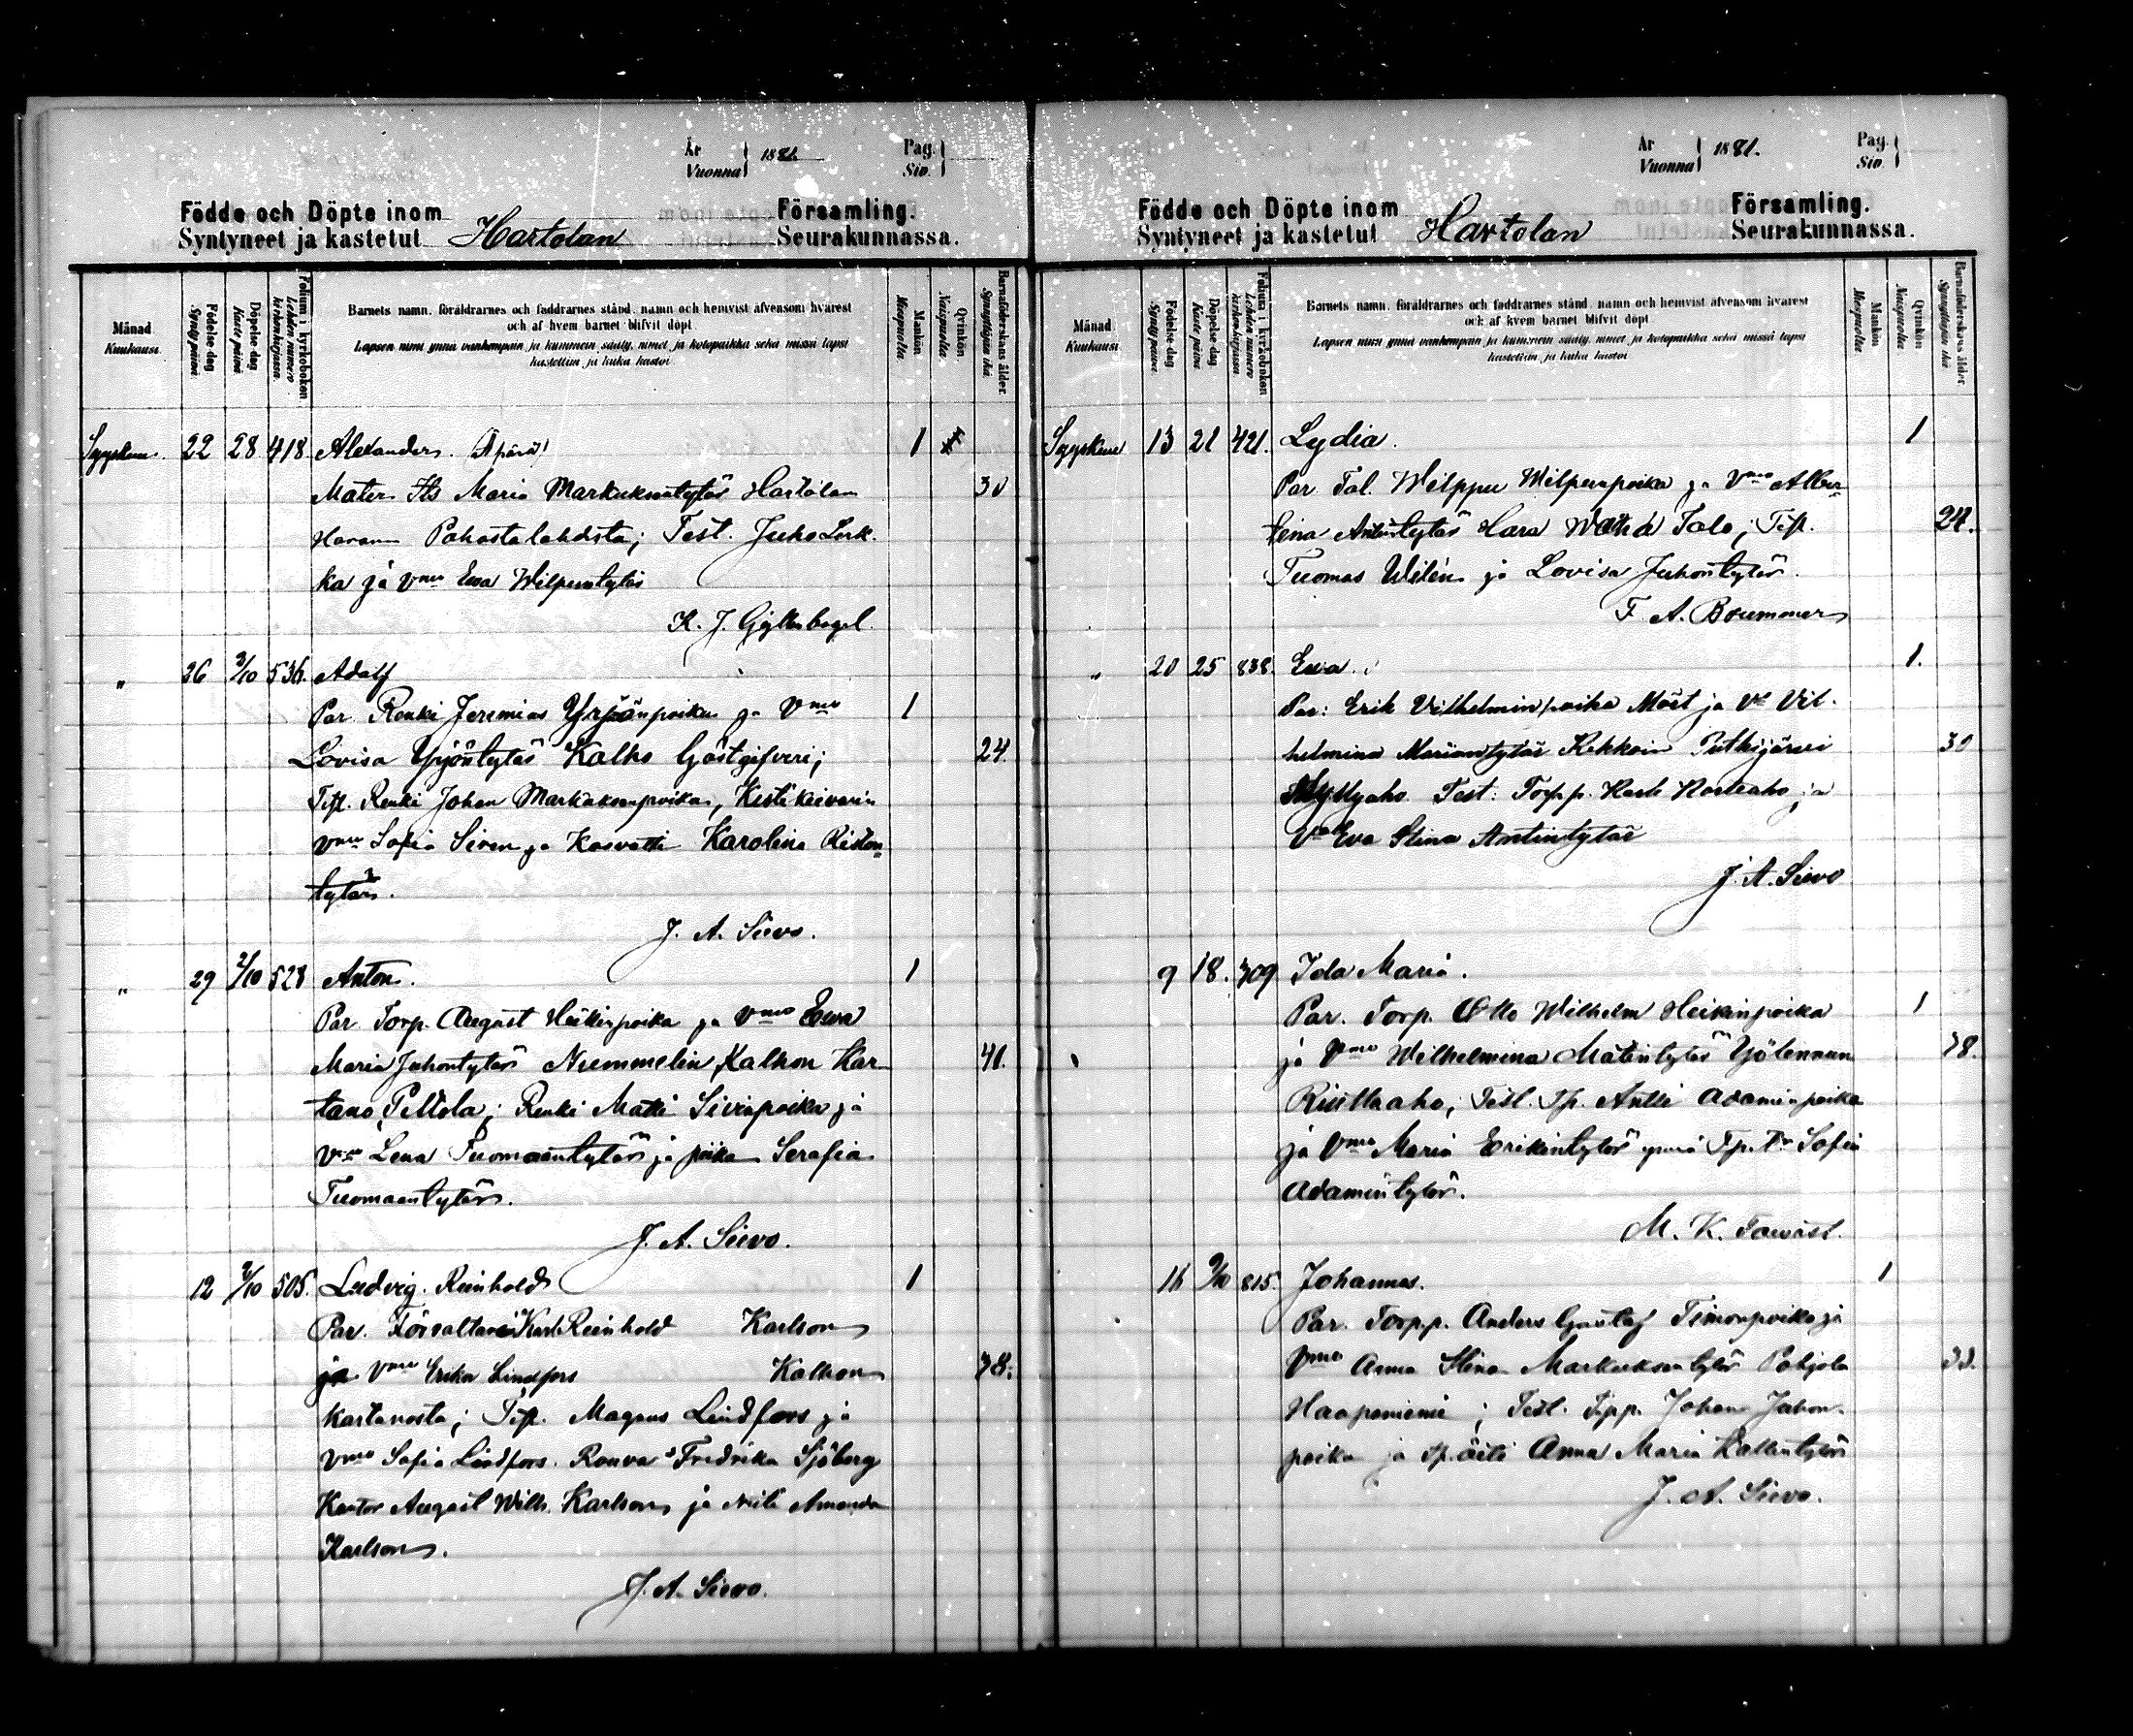 År
Vuonna
1881.
Pag.
Siv.
Födde och Döpte inom
Syntyneet ja kastetut
Hartolan
Församling.
Seurakunnassa.
Månad
Kuukausi.
Födelse dag
Synty päivä.
Döpelse dag
Kaste päivä
Folium i kyrkoboken
Lehden numero kirkonkirjassa.
Barnets namn, föräldrarnes och faddrarnes stånd, namn och hemvist äfvensom hvarest
och af hvem barnet blifvit döpt
Lapsen nimi ynnä vanhempain ja kummein sääty, nimet ja kotopaikka sekä missä lapsi
kastettiin ja kuka kastoi
Mankön
Miespuolta
Qvinkön
Naispuolta.
Barnaföderskans ålder.
Synnyttäjän ikä.
Syyskuu 22 28 418 Alexander. (Äpärä) 1
Mater Its Maria Markuksentytär Hartolan 30
Pohostalahdsta; Test. Juho Lerk-
ka ja Vmo Ewa Wilpuntytär
K. J. Gyllenbögel.
" 26 3/10 536. Adolf
Par. Renki Jeremias Yrjönpoika ja Vmo 1
Lovisa Yrjöntytär Kalho Gästgifveri; 24.
Test. Renki Johan Markuksenpoika, Kestikievarin
Vmo Sofia Siren ja Kasvatti Karolina Riston-
tytär.
J. A. Sievo.
" 29 2/10 528 Anton. 1
Par. Torp. August Heikinpoika ja Vmo Ewa
Maria Juhontytär Nummelin, Kalhon Kar- 41.
tano, Peltola; Renki Matti Sivinpoika ja
Vmo Lena Tuomaantytär ja piika Serafia
Tuomaantytär.
J. A. Sievo.
12 2/10 505. Ludvig Reinhold 1
Par. Förvaltare Karl Reinhold Karlson
ja Vmo Erika Lindfors Kalhon 38.
kartanosta; Test. Magnus Lindfors ja
Vmo Sofia Lindfors. Rouva Fredrika Sjöberg
Kantor August Wilh. Karlson ja neiti Amanda
Karlson.
J. A. Sievo.
År
Vuonna
1881.
Pag.
Siv.
Födde och Döpte inom
Syntyneet ja kastetut
Hartolan
Församling.
Seurakunnassa.
Månad
Kuukausi.
Födelse dag
Synty päivä.
Döpelse dag
Kaste päivä
Folium i kyrkoboken
Lehden numero kirkonkirjassa.
Barnets namn, föräldrarnes och faddrarnes stånd, namn och hemvist äfvensom hvarest
och af hvem barnet blifvit döpt
Lapsen nimi ynnä vanhempain ja kummein sääty, nimet ja kotopaikka sekä missä lapsi
kastettiin ja kuka kastoi
Mankön
Miespuolta
Qvinkön
Naispuolta.
Barnaföderskans ålder
Synnyttäjän ikä
Syyskuu 13 21 421. Lydia. 1
Par. Tal. Wilppu Wilpunpoika ja Vmo Alber-
tina Antintytär Hara Talo; Test. 24.
Tuomas Wilén ja Lovisa Juhontytär.
F. A. Brummer
" 20 25 838. Ewa. 1.
Par: Erik Vilhelminpoika Möst ja Vo Vil-
helmina Mariantytär Kekkoin Putkijärvi 30
Myllyaho Test: Torpp. Karl Korteaho ja
Vmo Eva Stina Antintytär
J. A. Sievo
9 18. 309 Ida Maria.
Par. Torp. Otto Wilhelm Heikinpoika 1
ja Vmo Wilhelmina Matintytär Yölennun 38.
Riuttaaho, Test. Tp. Antti Adaminpoika
ja Vmo Maria Erikintytär ynnä Tp. Tr Sofia
Adamintytär.
M. K. Tawast.
16 9/10 815. Johannes. 1
Par. Torpp. Anders Gustaf Timonpoika ja
Vmo Anna Stina Markuksentytär Pohjola 33.
Haapaniemi; Test. Tpp. Johan Juhon-
poika ja Tp. äiti Anna Maria Kallentytär
J. A. Sievo.